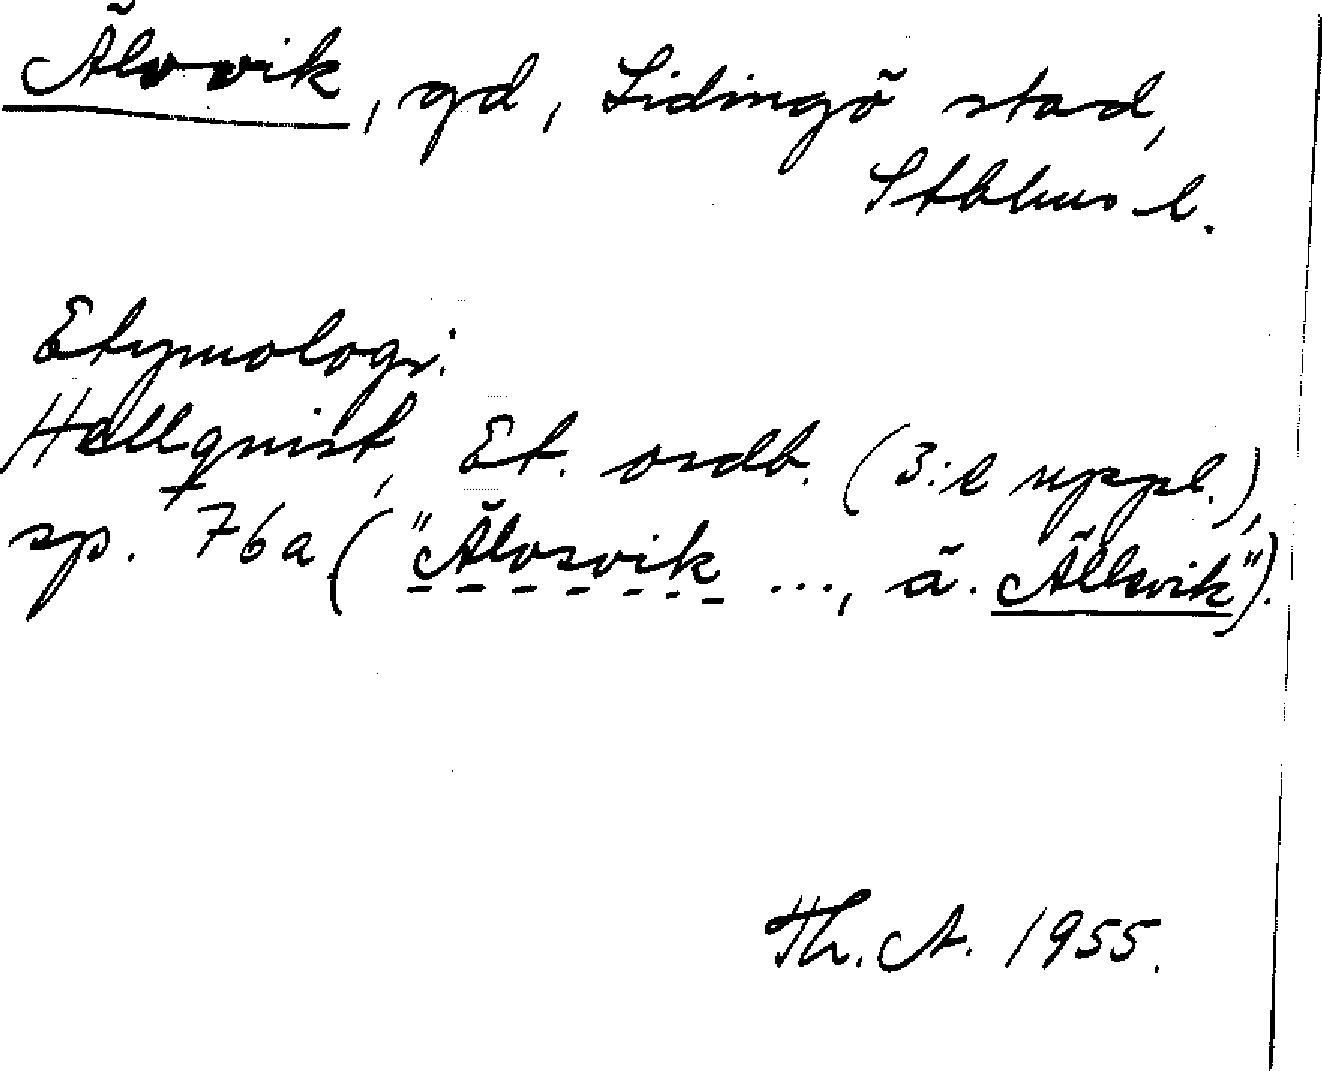 Älvvik, gd, Lidingö stad,
Sthlms l.
Etymologi:
Hellquist, Et. ordb. (3:e uppl.),
sp. 76a ("Älvsvik ..., ä. Ällsvik").
Th. A. 1955.